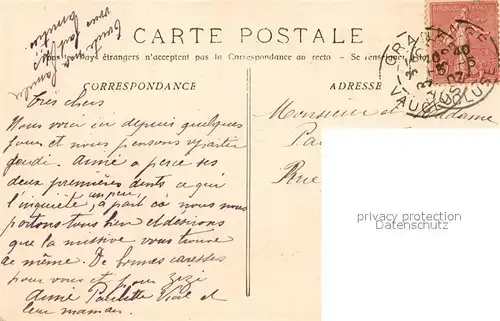 Toute
vous fait
amitiés
famille
CARTE POSTALE
REPUBLIQUE FRANÇAISE
Tous les pays étrangers n'acceptent pas la Correspondance au recto — Se renseigner
ORANGE
VAUCLUSE
CORRESPONDANCE
ADRESSE
Très chers
Nous voici ici depuis quelques
jours et nous pensons repartir
jeudi. Aimé a percé ses
deux premières dents ce qui
l'inquiète un peu, à part ça nous nous
portons tous bien et désirons
que la missive vous trouve
de même. De bonnes caresses
pour vous et pour zizi
Aimé Paulette et
leur maman.
Monsieur et Madame
Rue
privacy protection
Datenschutz